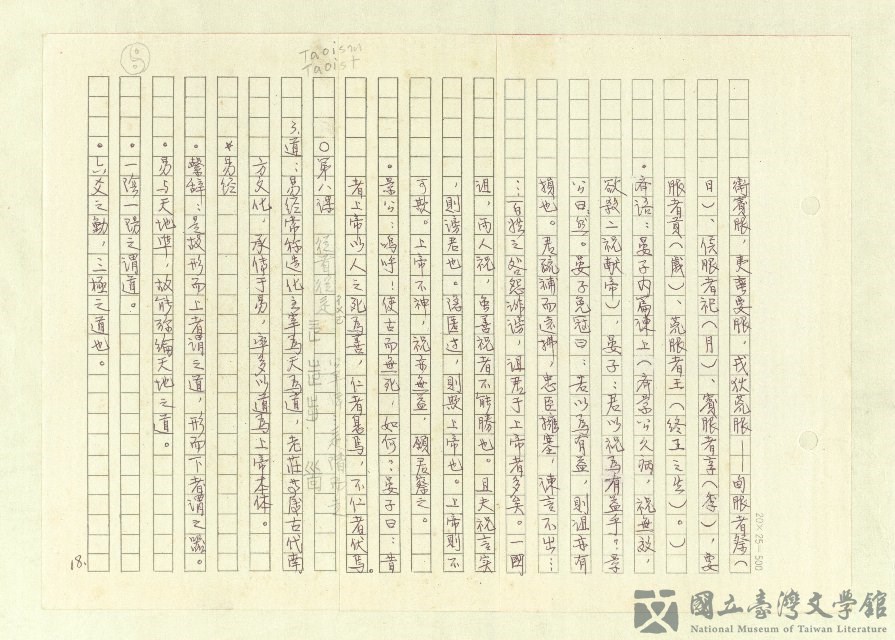 衛賓服，夷蠻要服，戎狄荒服——甸服者祭（
日）、侯服者祀（月）、賓服者享（季），要
服者貢（歲）、荒服者王（終王之告）。）
。齊語：晏子內篇諫上（齊景公久病，祝無效，
欲殺二祝獻帝），晏子：君以祝為有益乎？景
公曰：然。晏子免冠曰：若以為有益，則詛亦有
損也。君疏輔而遠拂，忠臣擁塞，諫言不出…
…百姓之咎怨誹謗，詛君于上帝者多矣。一國
詛，兩人祝，雖善祝者不能勝也。且夫祝言實
，則謗君也。諱匿過，則欺上帝也。上帝則不
可欺。上帝不神，祝亦無益，願君察之。
。景公：嗚呼！使古而無死，如何？晏子曰：昔
者上帝以人之死為善，仁者息焉，不仁者伏焉。
○第八課
3.道：易經常稱造化主宰為天為道，老莊
方文化，承傳于易，率多以道為上帝本体。
*易經
。繫辭：是故形而上者謂之道，形而下者謂之器。
。易与天地準，故能弥綸天地之道。
。一陰一陽之謂道。
。六爻之動，三極之道也。
Taoism
Taoist
18.
20×25=500
國立臺灣文學館
National Museum of Taiwan Literature